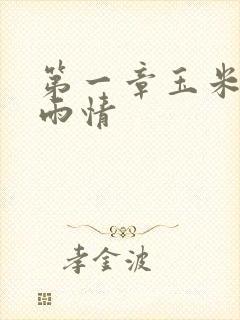 第一章玉米
雨情
李金波